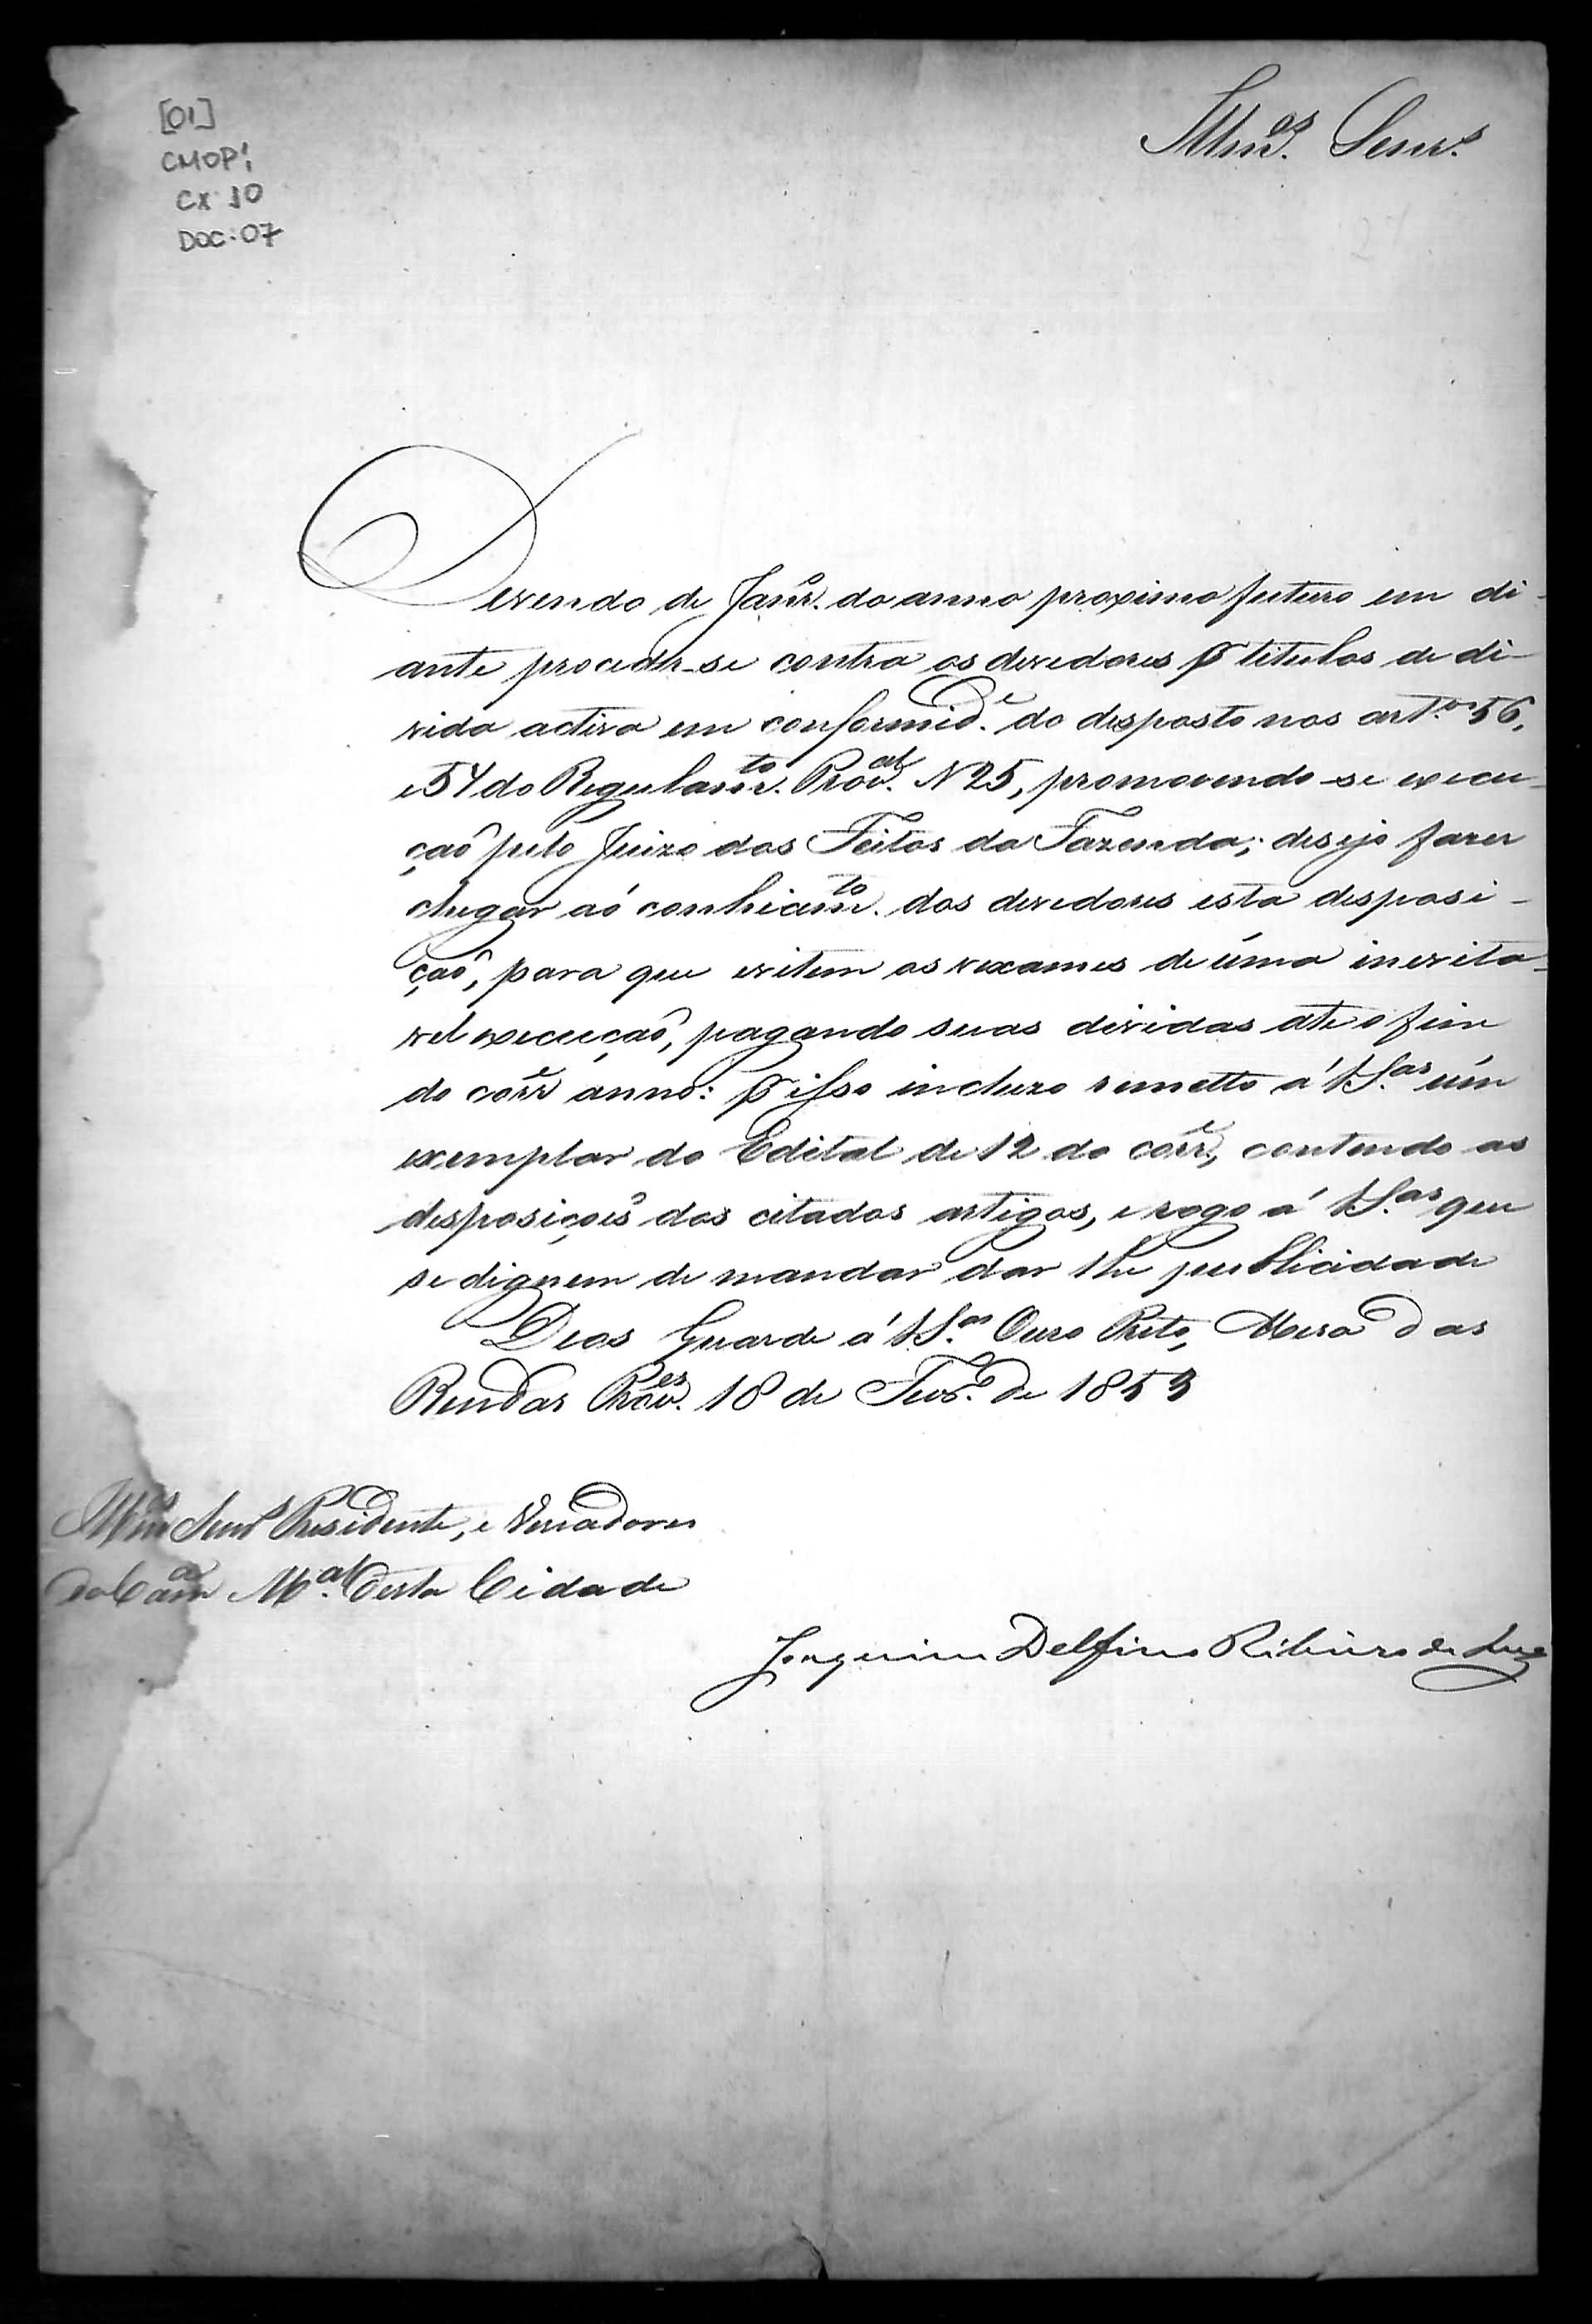 [01]
CMOP1
CX 10
DOC. 07
Illmos. Senrs.
Devendo de Janro. do anno proximo futuro em di-
ante proceder-se contra os devedores pr titulos de di-
vida activa em conformide. do disposto nos artos 56,
e 57 do Regulamto. Proval. N 25, promovendo-se execu-
çaõ pelo Juizo dos Feitos da Fazenda; desejo fazer
chegar aó conhecimto. dos devedores esta disposi-
çaõ, para que evitem os vexames de úma inevita-
vel execuçaõ, pagando suas dividas ate o fim
do corre anno: pr isso incluzo remetto á VSas. úm
exemplar do Edital de 12 do corre, contendo as
disposiçoẽs dos citados artigos, e rogo á VSas. que
se dignem de mandar dar lhe publicidade
Deos Guarde á VSas. Ouro Preto, Mesa das
Rendas Proves. 18 de Fevo. de 1853
Illmos Senrs Presidente, e Vereadores
da Camª Mal. desta Cidade
Joaquim Delfino Ribeiro da Luz